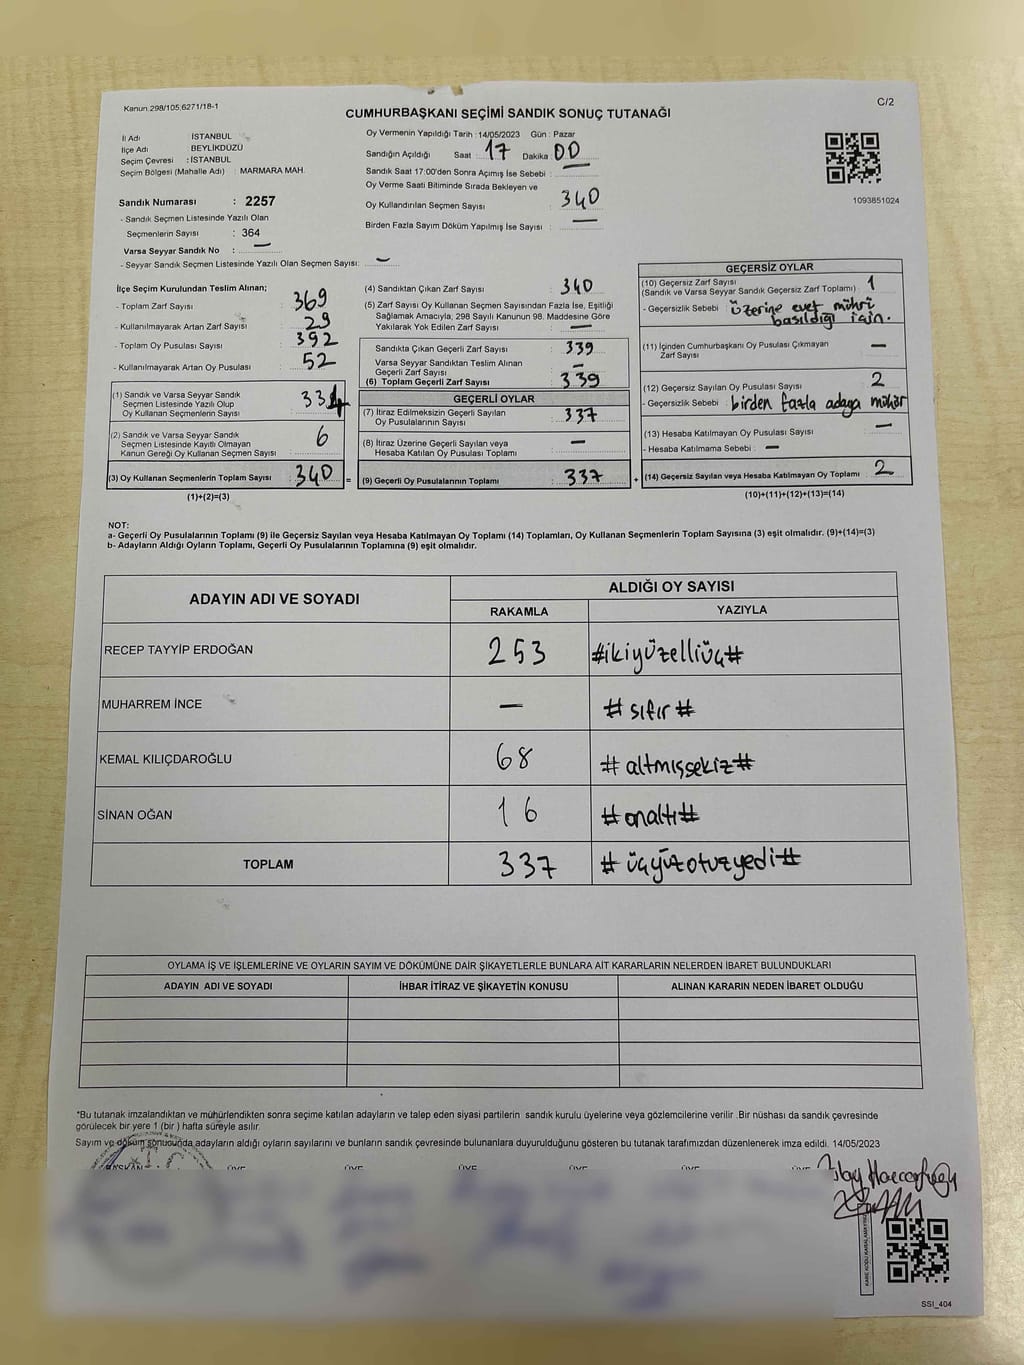 Kanun.298/105.6271/18-1
C/2
CUMHURBAŞKANI SEÇİMİ SANDIK SONUÇ TUTANAĞI
İl Adı : İSTANBUL
İlçe Adı : BEYLİKDÜZÜ
Seçim Çevresi : İSTANBUL
Seçim Bölgesi (Mahalle Adı) : MARMARA MAH.
Sandık Numarası : 2257
- Sandık Seçmen Listesinde Yazılı Olan
Seçmenlerin Sayısı : 364
Varsa Seyyar Sandık No : —
- Seyyar Sandık Seçmen Listesinde Yazılı Olan Seçmen Sayısı: —
Oy Vermenin Yapıldığı Tarih : 14/05/2023 Gün : Pazar
Sandığın Açıldığı Saat : 17 Dakika : 00
Sandık Saat 17:00'den Sonra Açımış İse Sebebi : —
Oy Verme Saati Bitiminde Sırada Bekleyen ve
Oy Kullandırılan Seçmen Sayısı : 340
Birden Fazla Sayım Döküm Yapılmış İse Sayısı : —
1093851024
İlçe Seçim Kurulundan Teslim Alınan;
- Toplam Zarf Sayısı : 369
- Kullanılmayarak Artan Zarf Sayısı : 29
- Toplam Oy Pusulası Sayısı : 392
- Kullanılmayarak Artan Oy Pusulası : 52
(1) Sandık ve Varsa Seyyar Sandık
Seçmen Listesinde Yazılı Olup
Oy Kullanan Seçmenlerin Sayısı : 334
(2) Sandık ve Varsa Seyyar Sandık
Seçmen Listesinde Kayıtlı Olmayan
Kanun Gereği Oy Kullanan Seçmen Sayısı : 6
(3) Oy Kullanan Seçmenlerin Toplam Sayısı : 340 =
(1)+(2)=(3)
(4) Sandıktan Çıkan Zarf Sayısı : 340
(5) Zarf Sayısı Oy Kullanan Seçmen Sayısından Fazla İse, Eşitliği
Sağlamak Amacıyla, 298 Sayılı Kanunun 98. Maddesine Göre
Yakılarak Yok Edilen Zarf Sayısı : —
Sandıkta Çıkan Geçerli Zarf Sayısı : 339
Varsa Seyyar Sandıktan Teslim Alınan
Geçerli Zarf Sayısı : —
(6) Toplam Geçerli Zarf Sayısı : 339
GEÇERLİ OYLAR
(7) İtiraz Edilmeksizin Geçerli Sayılan
Oy Pusulalarının Sayısı : 337
(8) İtiraz Üzerine Geçerli Sayılan veya
Hesaba Katılan Oy Pusulası Toplamı : —
(9) Geçerli Oy Pusulalarının Toplamı : 337 +
GEÇERSİZ OYLAR
(10) Geçersiz Zarf Sayısı
(Sandık ve Varsa Seyyar Sandık Geçersiz Zarf Toplamı) : 1
- Geçersizlik Sebebi : üzerine evet mührü
basıldığı için.
(11) İçinden Cumhurbaşkanı Oy Pusulası Çıkmayan
Zarf Sayısı : —
(12) Geçersiz Sayılan Oy Pusulası Sayısı : 2
- Geçersizlik Sebebi : birden fazla adaya mühür
(13) Hesaba Katılmayan Oy Pusulası Sayısı : —
- Hesaba Katılmama Sebebi : —
(14) Geçersiz Sayılan veya Hesaba Katılmayan Oy Toplamı : 2
(10)+(11)+(12)+(13)=(14)
NOT:
a- Geçerli Oy Pusulalarının Toplamı (9) ile Geçersiz Sayılan veya Hesaba Katılmayan Oy Toplamı (14) Toplamları, Oy Kullanan Seçmenlerin Toplam Sayısına (3) eşit olmalıdır. (9)+(14)=(3)
b- Adayların Aldığı Oyların Toplamı, Geçerli Oy Pusulalarının Toplamına (9) eşit olmalıdır.
ADAYIN ADI VE SOYADI
ALDIĞI OY SAYISI
RAKAMLA YAZIYLA
RECEP TAYYİP ERDOĞAN 253 #ikiyüzelliüç#
MUHARREM İNCE — #sıfır#
KEMAL KILIÇDAROĞLU 68 #altmışsekiz#
SİNAN OĞAN 16 #onaltı#
TOPLAM 337 #üçyüzotuzyedi#
OYLAMA İŞ VE İŞLEMLERİNE VE OYLARIN SAYIM VE DÖKÜMÜNE DAİR ŞİKAYETLERLE BUNLARA AİT KARARLARIN NELERDEN İBARET BULUNDUKLARI
ADAYIN ADI VE SOYADI İHBAR İTİRAZ VE ŞİKAYETİN KONUSU ALINAN KARARIN NEDEN İBARET OLDUĞU
*Bu tutanak imzalandıktan ve mühürlendikten sonra seçime katılan adayların ve talep eden siyasi partilerin sandık kurulu üyelerine veya gözlemcilerine verilir. Bir nüshası da sandık çevresinde
görülecek bir yere 1 (bir) hafta süreyle asılır.
Sayım ve döküm sonucunda adayların aldığı oyların sayılarını ve bunların sandık çevresinde bulunanlara duyurulduğunu gösteren bu tutanak tarafımızdan düzenlenerek imza edildi. 14/05/2023
BAŞKAN ÜYE ÜYE ÜYE ÜYE ÜYE ÜYE
SSI_404